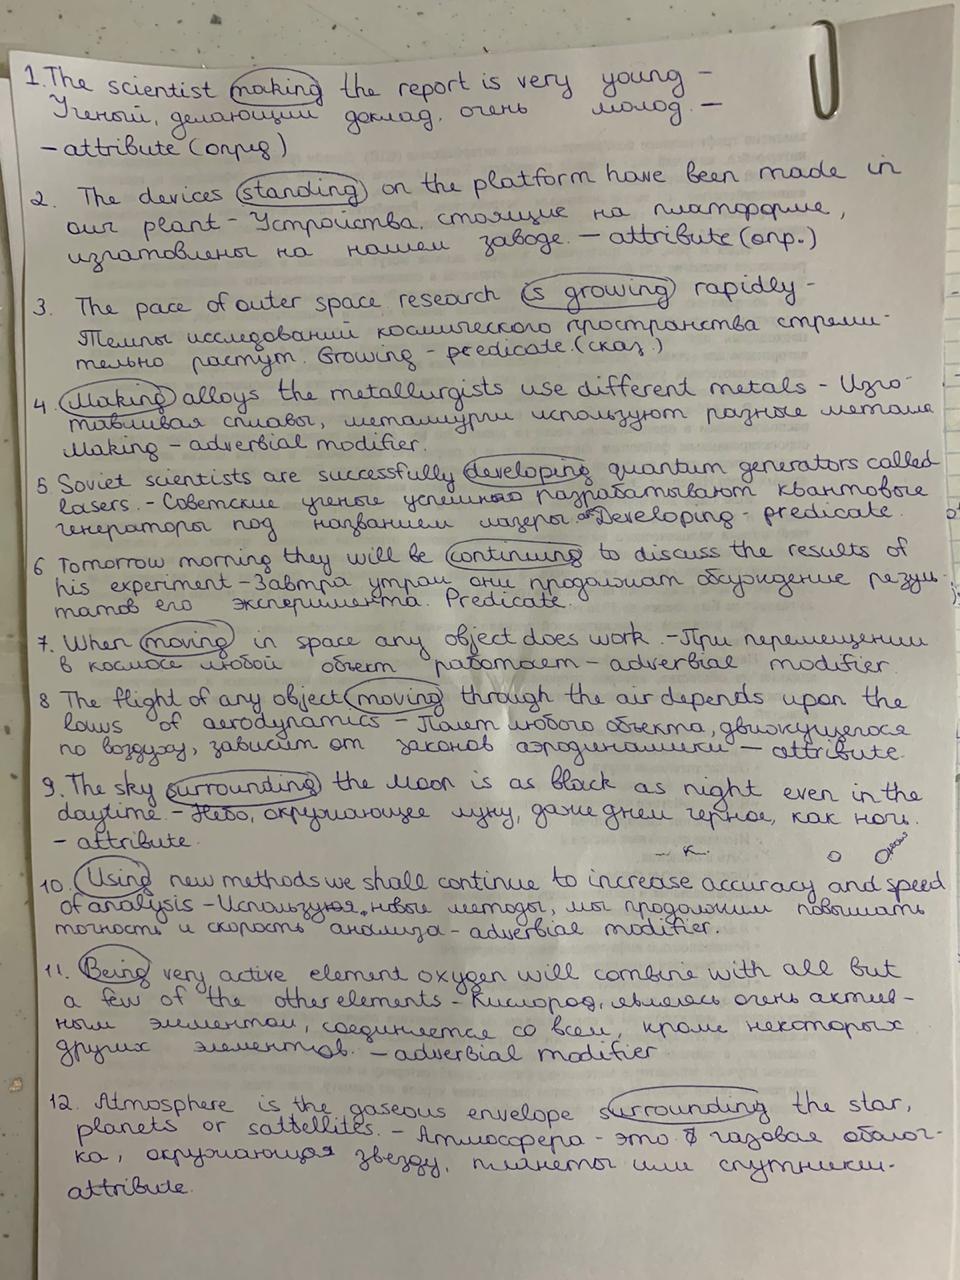 1. The scientist making the report is very young –
Ученый, делающий доклад, очень молод. –
– attribute (опред)
2. The devices standing on the platform have been made in
our plant – Устройства, стоящие на платформе,
изготовлены на нашем заводе. – attribute (опр.)
3. The pace of outer space research is growing rapidly –
Темпы исследований космического пространства стреми-
тельно растут. Growing – predicate. (сказ.)
4. Making alloys the metallurgists use different metals – Изго-
тавливая сплавы, металлурги используют разные металлы
Making – adverbial modifier.
5 Soviet scientists are successfully developing quantum generators called
lasers. – Советские ученые успешно разрабатывают квантовые
генераторы под названием лазеры. Developing – predicate.
6 Tomorrow morning they will be continuing to discuss the results of
his experiment – Завтра утром они продолжат обсуждение резуль-
татов его эксперимента. Predicate.
7. When moving in space any object does work. – При перемещении
в космосе любой объект работает – adverbial modifier.
8 The flight of any object moving through the air depends upon the
laws of aerodynamics – Полет любого объекта, движущегося
по воздуху, зависит от законов аэродинамики – attribute.
9. The sky surrounding the Moon is as black as night even in the
daytime. – Небо, окружающее луну, даже днем черное, как ночь.
– attribute.
10. Using new methods we shall continue to increase accuracy and speed
of analysis – Используя новые методы, мы продолжим повышать
точность и скорость анализа – adverbial modifier.
11. Being very active element oxygen will combine with all but
a few of the other elements – Кислород, являясь очень актив-
ным элементом, соединяется со всем, кроме некоторых
других элементов. – adverbial modifier
12. Atmosphere is the gaseous envelope surrounding the star,
planets or sattellites. – Атмосфера – это газовая оболоч-
ка, окружающая звезду, планеты или спутники.
attribute.